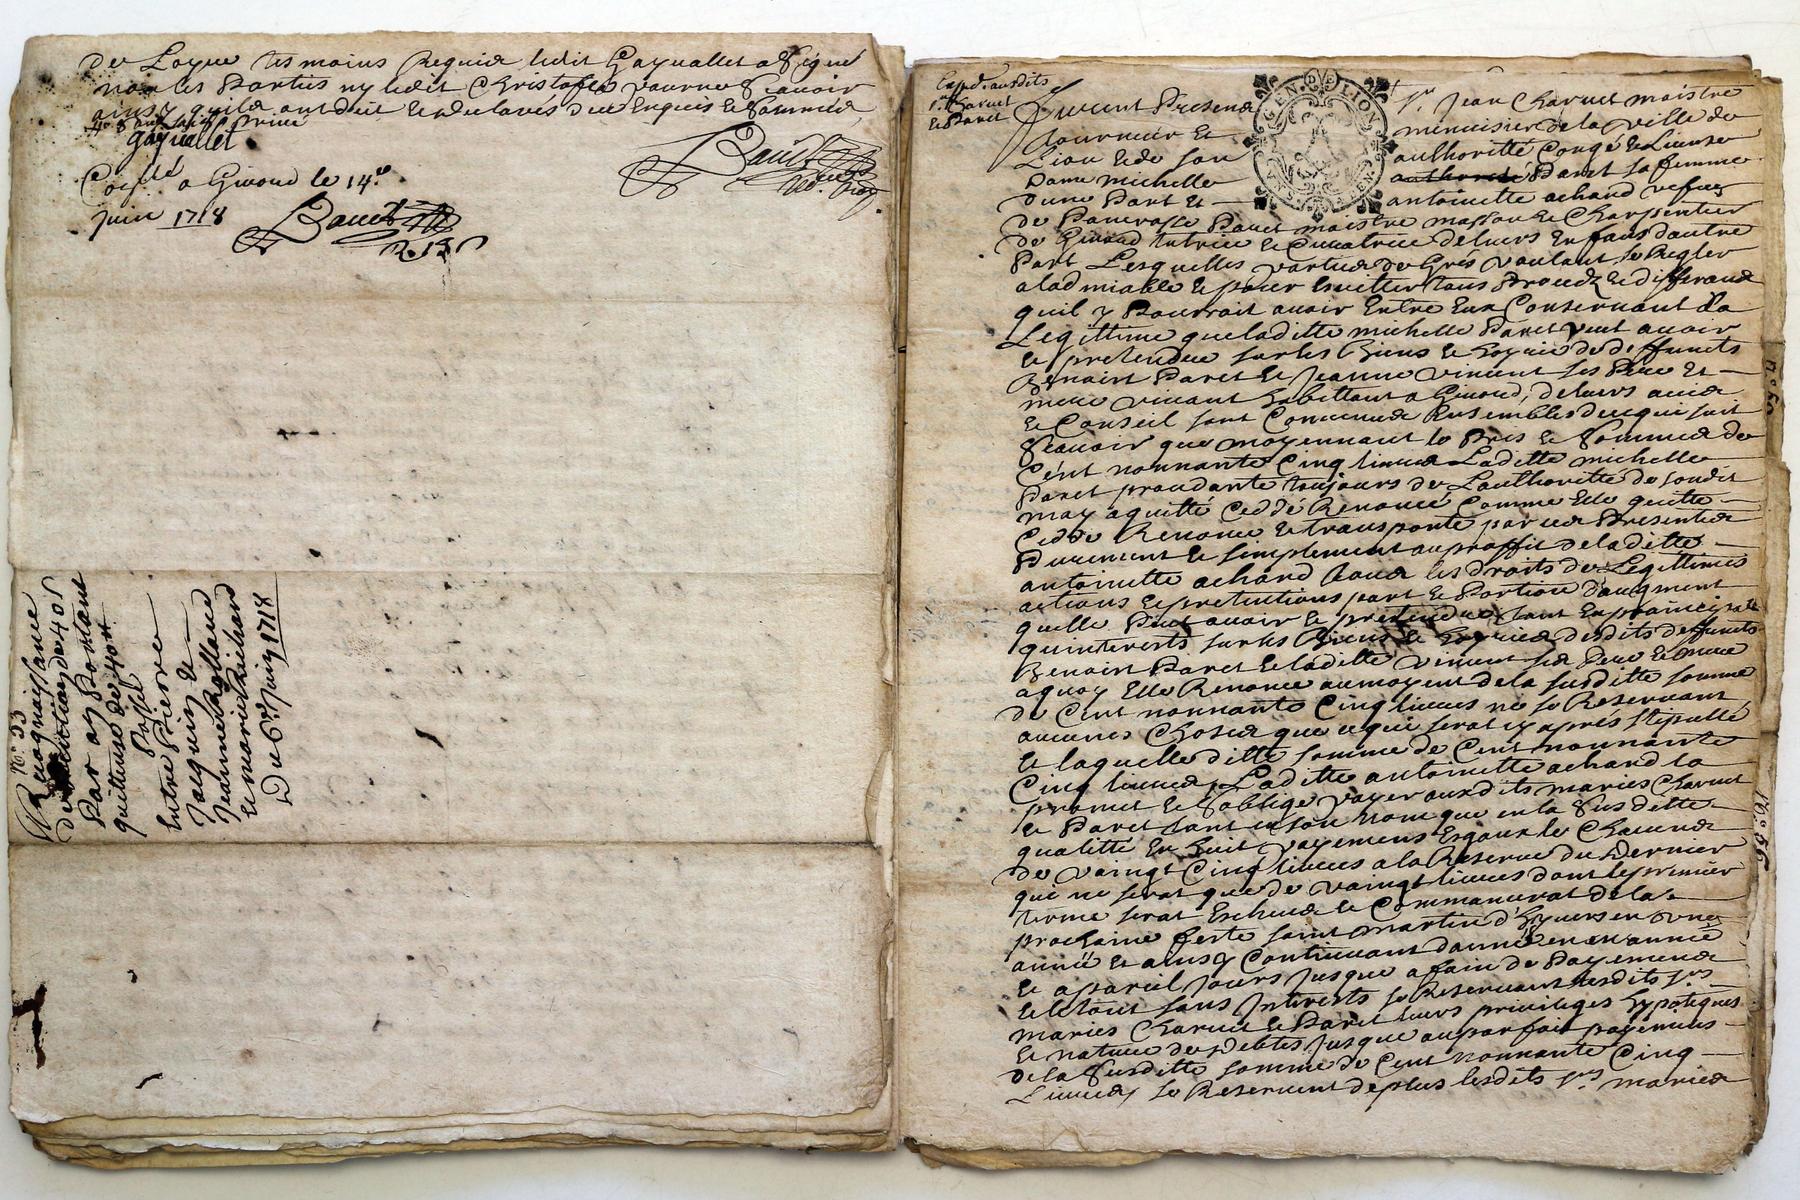 de Loyue tesmoins Requis ledit Gayuallet a signé
non les Parties ny ledit Christofle pour ne sçauoir
ainsy quils ont dit et declarés deüe Enquis et sommés
gayuallet
Baud
Coné a Giuord le 14e.
Juin 1718
N° 33
Recognoissance
de 40s
Par
quittance de 40tt
Passé
Entre Pierre
Jacquin et
Jeanne Rolland
et marie
Du 6e. Juin 1718
Exped. ausdits
sr. Charuet
et Paret
GEN. DE LION
Furent Presens sr. Jean Charuet maistre
tourneur et menuisier de la ville de
Lion et de son authoritté congé et License
Dame michelle Paret sa femme
dune Part et antoinette achard vefue
de Pancrasse Paret maistre masson et Charpentier
de Giuord tutrice et Curatrice de leurs Enfans dautre
Part Lesquelles parties de Grés voulant se Regler
a ladmiable et pour Euitter tous Procedz et differands
quil y Pourroit auoir Entre Eux Consernant La
Legittime que laditte michelle Paret veut auoir
et pretendre sur les Biens et hoyrie de deffuncts
Benoist Paret et Jeanne vincent ses Pere et
mere viuant habittant a Giuord, de leurs auis
et Conseil sont Conuenus Ensembles de ce qui suit
sçauoir que moyennant le Pris et somme de
Cent nonnante Cinq liures Laditte michelle
Paret procedante toujours de Lauthoritté de sondit
mary a quitté Ceddé Renoncé Comme Elle quitte
Cedde Renonce et transporte par ces Presentes
Purement et simplement au proffit de laditte
antoinette achard tous les droits de Legittimes
actions et pretentions part et Portion daugment
quelle Peut auoir et pretendre tant En principale
quinterests sur les Biens et hoyries desdits deffuncts
Benoist Paret et laditte vincent ses Pere et mere
a quoy Elle Renonce au moyent de la susditte somme
de Cent nonnante Cinq liures ne se Reseruant
aucunes Choses que ce qui serat cy apres stipullé
Et laquelle ditte somme de Cent nonnante
Cinq liures Laditte antoinette achard la
promet et soblige payer auxdits mariés Charuet
et Paret tant en son nom que en la susditte
qualitté En huit payemens Egaux et Chacuns
de vaingt Cinq liures a la Reserue du Dernier
qui ne serat que de vaingt liures dont le premier
terme serat Escheus et Commancerat de la
prochaine feste saint martin d'hyuers en vng
année et ainsy Continuant dannée en année
et a pareil Jours Jusque a fain de Payemens
et le tout sans Interests se Reseruant lesdits srs.
mariés Charuet et Paret leurs priuileges hypoteques
et nature de debtes Jusque au parfait payemens
de la susditte somme de Cent nonnante Cinq
Liures, se Reseruent de plus lesdits srs. mariés
N° 56